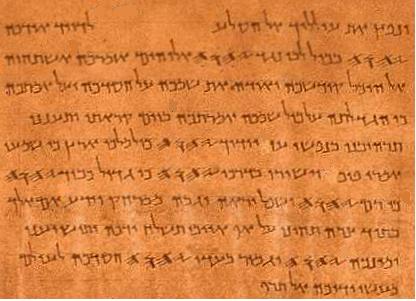 ונפץ את עולליך אל הסלע לדויד אודכה
𐤉𐤄𐤅𐤄 בכול לבי נגד 𐤉𐤄𐤅𐤄 אלוהים אזמרכה אשתחוה
אל היכל קודשכה ואודה את שמכה על חסדכה ועל אמתכה
כי הגדלתה על כול שמכה אמרתכה ביום קראתי ותענני
תרהיבני בנפשי עוז יודוך 𐤉𐤄𐤅𐤄 כול מלכי ארץ כי שמעו
אמרי פיך וישירו בדרכי 𐤉𐤄𐤅𐤄 כי גדול כבוד 𐤉𐤄𐤅𐤄
כי רם 𐤉𐤄𐤅𐤄 ושפל יראה וגבה ממרחק יידע אם אלך
בתוך צרה תחיני על אף אויבי תשלח ידכה ותושיעני
ימינכה 𐤉𐤄𐤅𐤄 יגמר בעדי 𐤉𐤄𐤅𐤄 חסדכה לעולם
מעשי ידיכה אל תרף